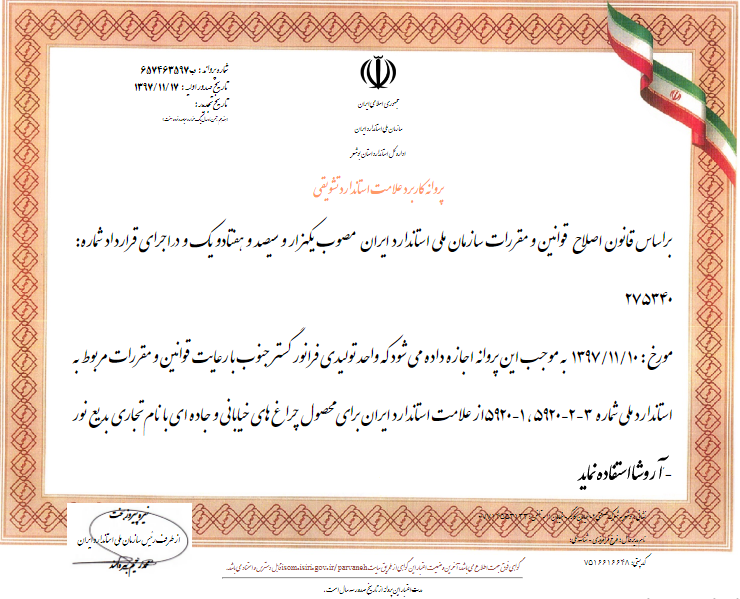 شماره پروانه: ب۶۵۷۴۶۳۵۹۷
تاریخ صدور اولیه: ۱۳۹۷/۱۱/۱۷
تاریخ تجدید:
جمهوری اسلامی ایران
سازمان ملی استاندارد ایران
اداره کل استاندارد استان بوشهر
پروانه کاربرد علامت استاندارد تشویقی
براساس قانون اصلاح قوانین و مقررات سازمان ملی استاندارد ایران مصوب یکهزار و سیصد و هفتاد و یک و در اجرای قرارداد شماره:
۲۷۵۳۴۰
مورخ: ۱۳۹۷/۱۱/۱۰ به موجب این پروانه اجازه داده می شود که واحد تولیدی فرانور گستر جنوب با رعایت قوانین و مقررات مربوط به
استاندارد ملی شماره ۳-۲-۵۹۲۰ ، ۱-۵۹۲۰ از علامت استاندارد ایران برای محصول چراغ های خیابانی و جاده ای با نام تجاری بدیع نور
- آروشا استفاده نماید
از طرف رئیس سازمان ملی استاندارد ایران
کدپستی: ۷۵۱۶۶۱۶۶۴۸
گواهی فوق جهت اطلاع می باشد، آخرین وضعیت اعتبار این گواهی از طریق سایت isom.isiri.gov.ir/parvaneh قابل دسترس و استنادی باشد.
مدت اعتبار این پروانه از تاریخ صدور سه سال است.